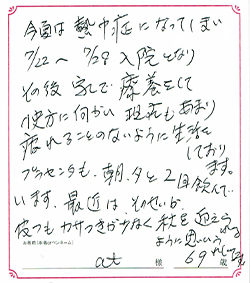 今夏は熱中症になってしまい
7/22〜7/29入院となり
その後 家で療養をして
彼方に向かい 現在もあまり
疲れることのないように生活を
しております。
プラセンタも、朝、夕と2回飲んで
います。最近は、そのせいか
皮フもカサつきが少なく 秋を迎えられる
ように思いうれしいです
お名前(本名orペンネーム)
at 様 69歳